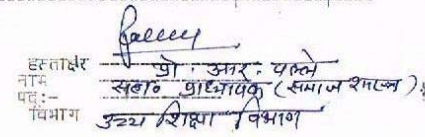 हस्ताक्षर
नाम प्रो. आर. पल्ले
पद:- सहा० प्राध्यापक (समाज शास्त्र)
विभाग उच्च शिक्षा विभाग